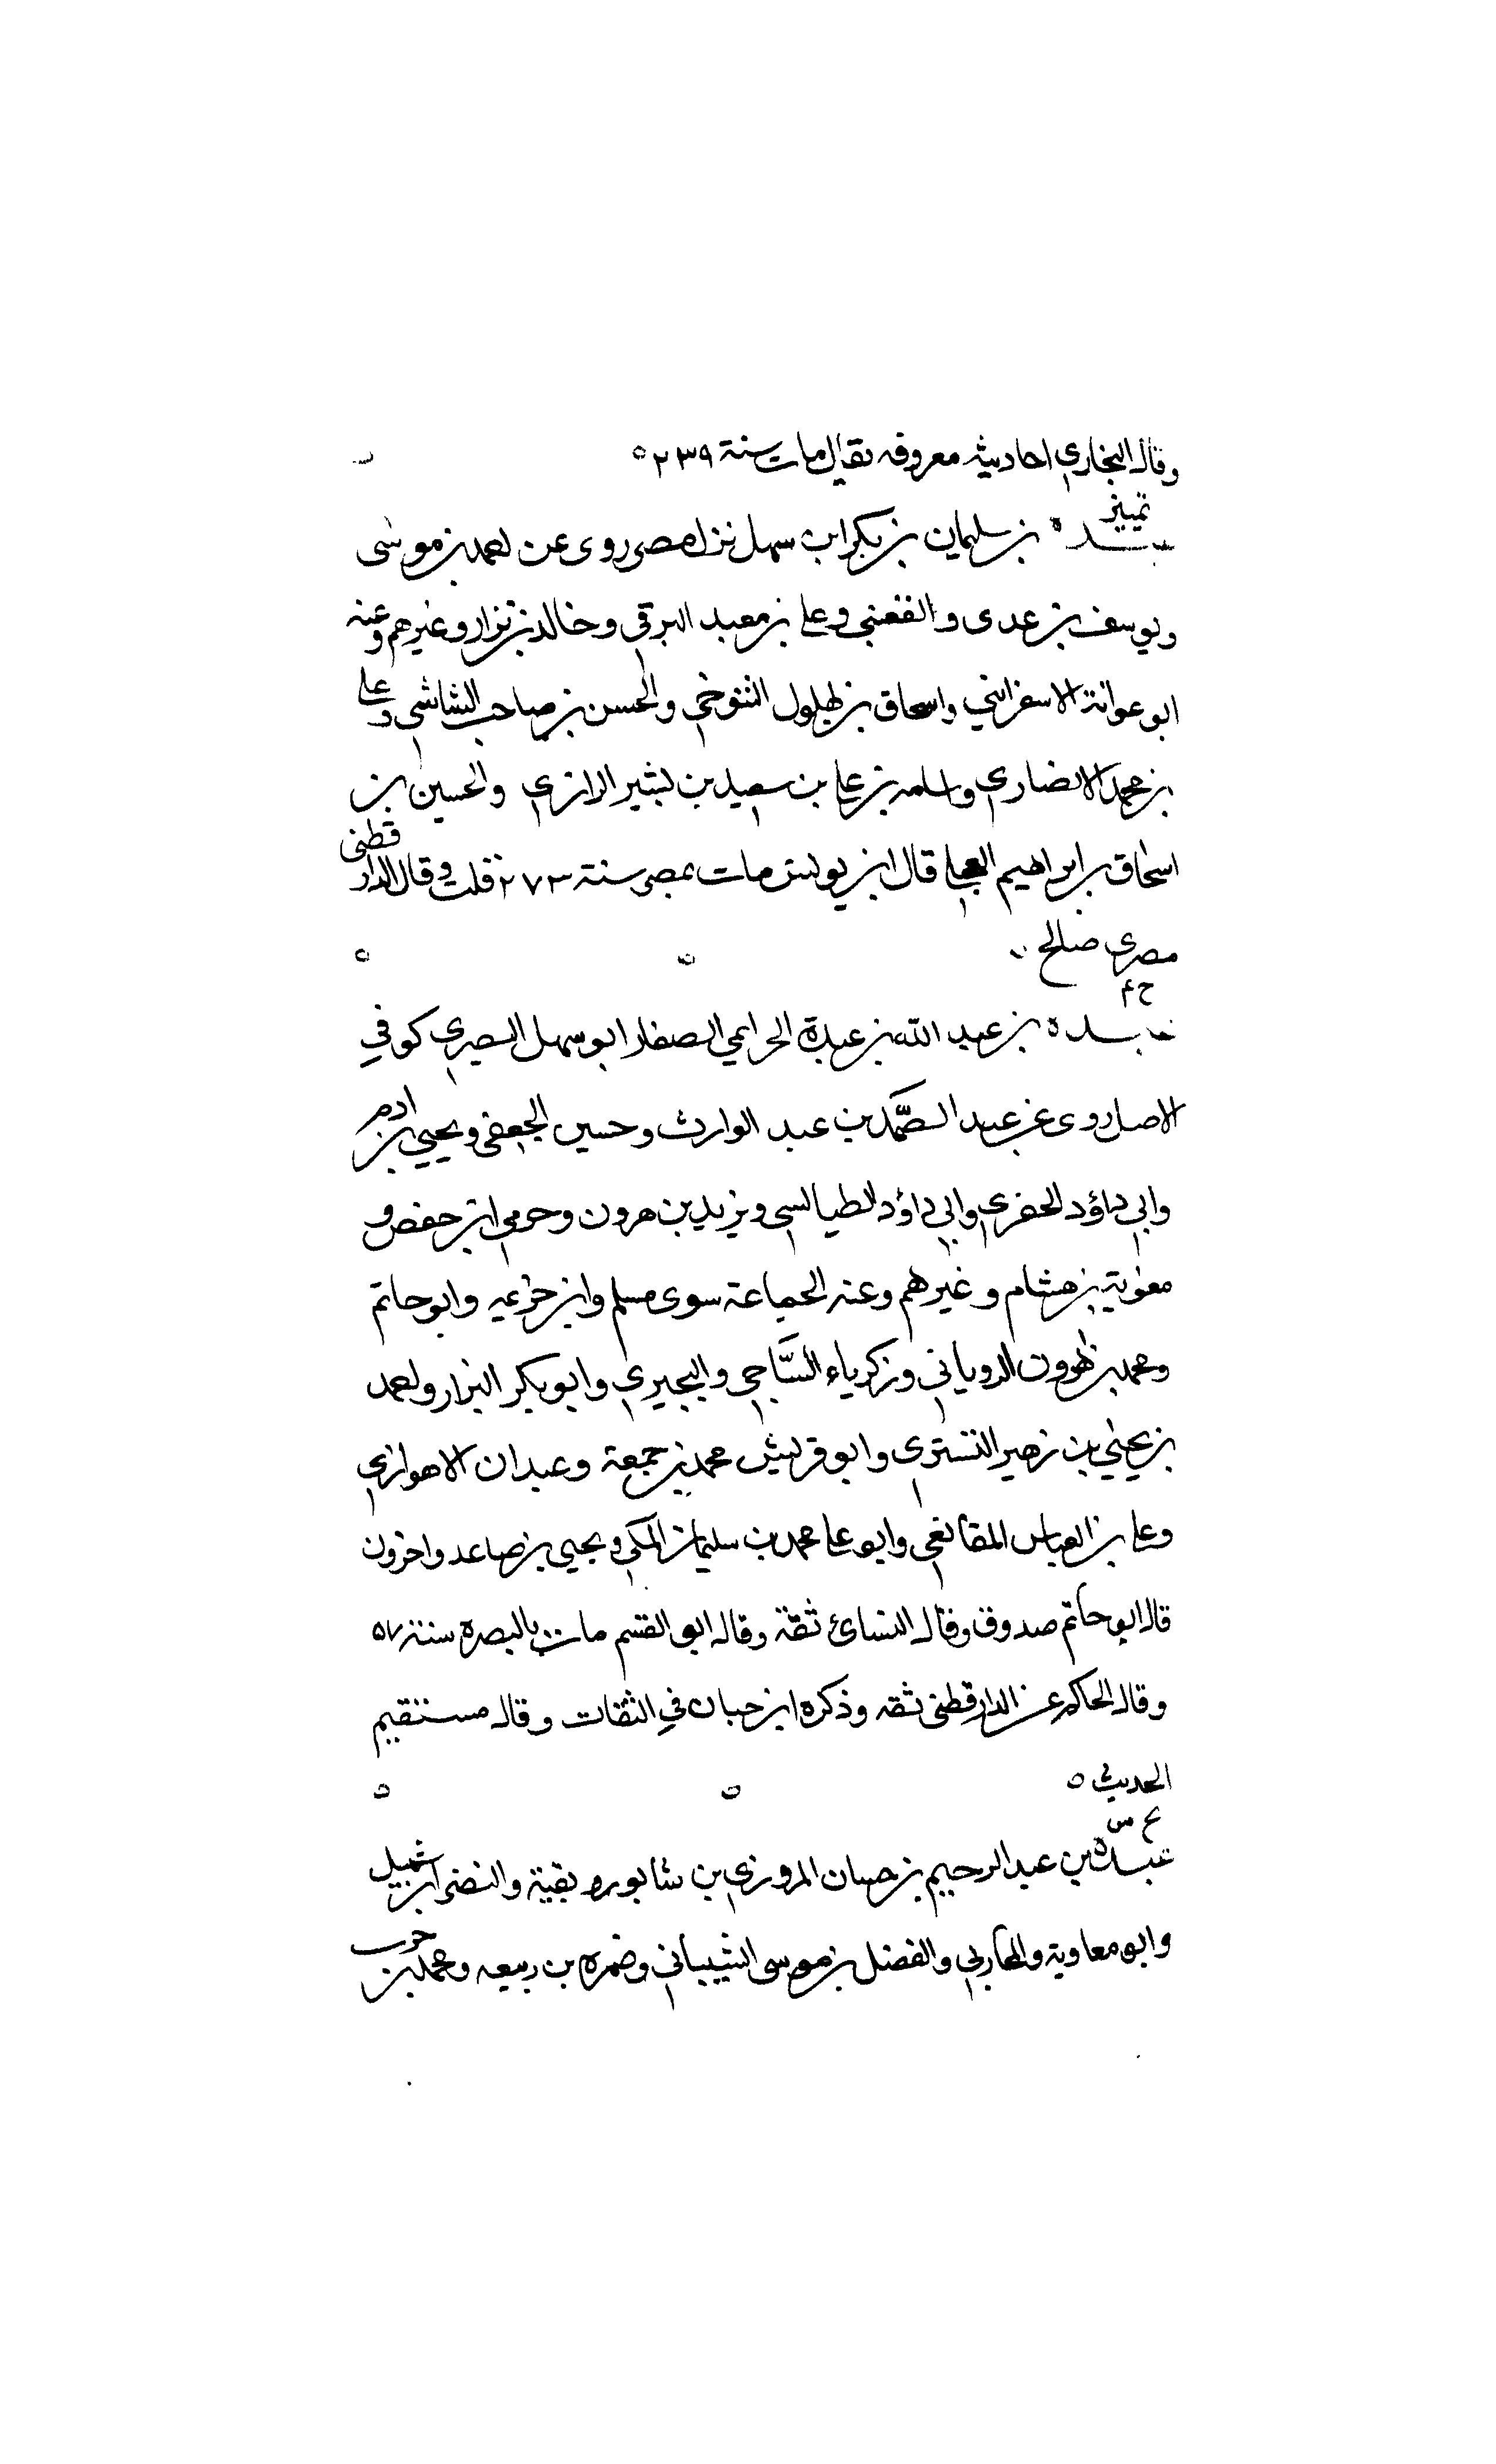 وقال البخاري احاديثه معروفه يقال مات سنة ٢٣٩ ه
تمييز
عبدة بن سليمان بن بكر ابو سهل نزل مصر روى عن احمد بن موسى
ويوسف بن عدى والقعنبي وعلي بن معبد البرقي وخالد بن نزار وغيرهم وعنه
ابو عوانة الاسفرايني واسحاق بن بهلول التنوخي والحسن بن صاحب الشاشي وعلي
بن محمد الانصاري واسامه بن علي بن سعيد بن بشير الرازي والحسين بن
اسحاق بن ابراهيم العجلي قال ابن يونس مات بمصر سنة ٢٧٣ قلت وقال الدارقطني
مصري صالح
خ ٤
عبدة بن عبد الله بن عبدة الخزاعي الصفار ابو سهل البصري كوفي
الاصل روى عن عبد الصَّمَد بن عبد الوارث وحسين الجعفي ويحيي بن ادم
وابي داؤد الحفري وابي داؤد الطيالسي ويزيد بن هرون وحرمي ابن حفص و
معوية بن هشام وغيرهم وعنه الجماعة سوى مسلم وابن خزيمه وابو حاتم
ومحمد بن هرون الروياني وزكرياء السَّاجي والبجيري وابو بكر البزار واحمد
بن يحيي بن زهير التستري وابو قريش محمد بن جمعة وعبدان الاهوازي
وعلي بن العباس المقانعي وابو علي محمد بن سليمان المكي ويحيي بن صاعد واخرون
قال ابو حاتم صدوق وقال النسائ ثقة وقال ابو القسم مات بالبصره سنة ٥٧
وقال الحاكم عن الدارقطني ثقه وذكره ابن حبان في الثقات وقال مستقيم
الحديث ه
خ س
عبدة بن عبد الرحيم بن حسان المروزي بن شابور وبقية والنضر ابن شميل
وابو معاوية والمحاربي والفضل بن موسى الشيباني وضمره بن ربيعه ومحمد بن حرب